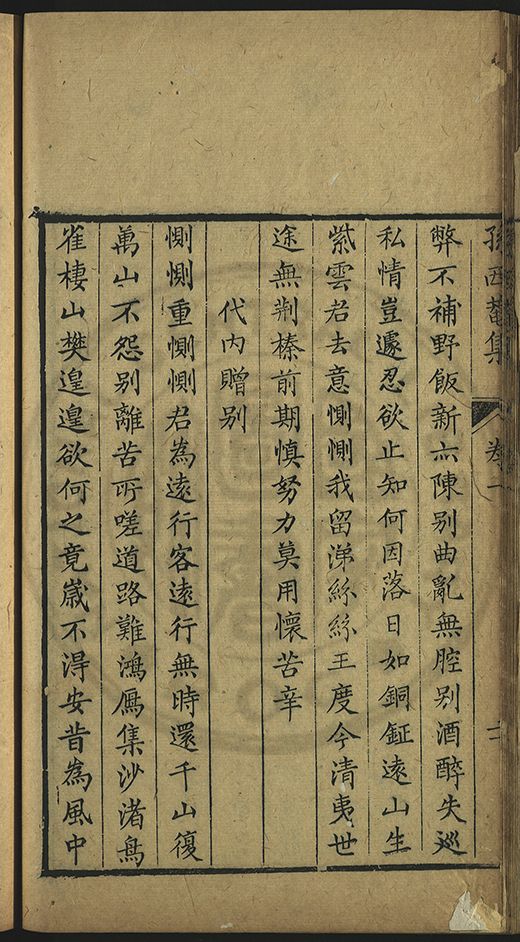 孫西菴集
卷一
弊不補野飯新亦陳别曲亂無腔别酒醉失巡
私情豈遽忍欲止知何因落日如銅鉦遠山生
紫雲君去意惻惻我留涕絲絲王度今清夷世
途無荆榛前期慎努力莫用懷苦辛
代内贈别
惻惻重惻惻君為遠行客遠行無時還千山復
萬山不怨别離苦所嗟道路難鴻鴈集沙渚鳥
雀棲山樊遑遑欲何之竟歲不得安昔為風中